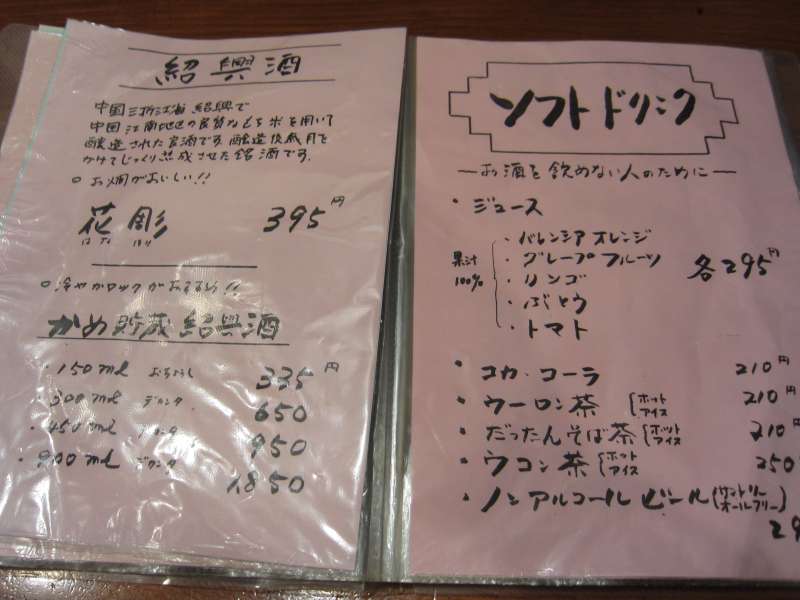 紹興酒
中国浙江省 紹興で
中国江南地区の良質なもち米を用いて
醸造された官酒です。醸造後歳月を
かけてじっくり熟成させた銘酒です。
○ お燗がおいしい!!
花彫 395円
はな ほり
○ 冷やかロックがおすすめ!!
かめ貯蔵紹興酒
・150ml おちょうし 335円
・300ml デカンタ 650
・450ml デカンタ 950
・900ml デカンタ 1,850
ソフトドリンク
―お酒を飲めない人のために―
・ジュース
果汁100%
・バレンシアオレンジ
・グレープフルーツ
・リンゴ
・ぶどう
・トマト
各295円
・コカ・コーラ 210円
・ウーロン茶 {ホット アイス 210円
・だったんそば茶 {ホット アイス 210円
・ウコン茶 {ホット アイス 250
・ノンアルコールビール (サントリー オールフリー)